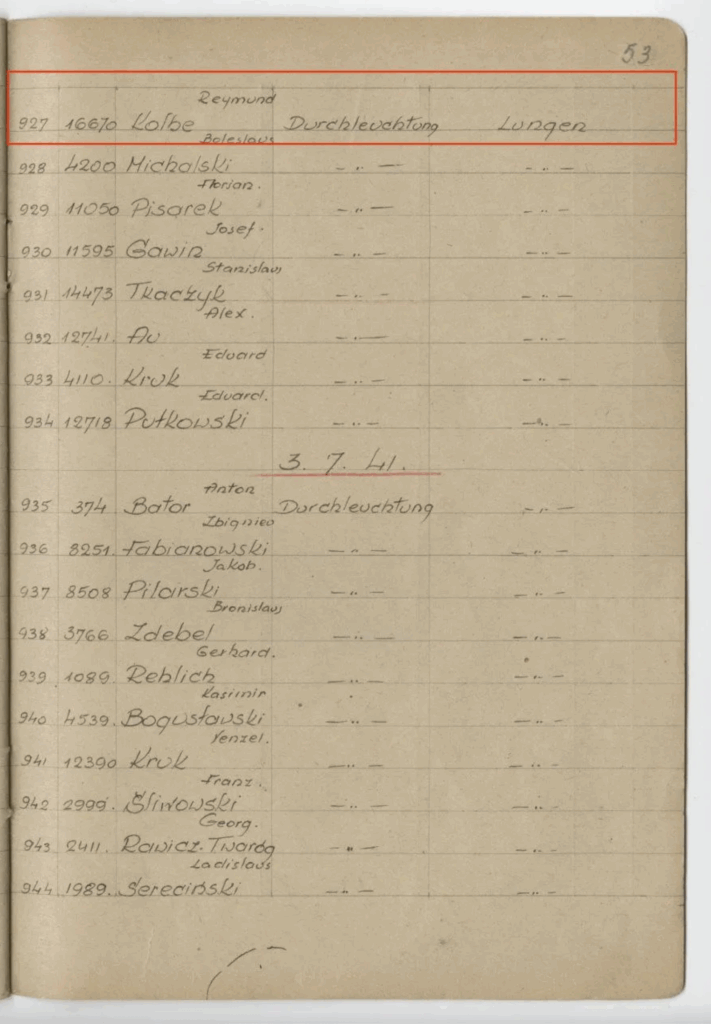 53
Reymund
927 16670 Kolbe Durchleuchtung Lungen
Boleslaus
928 4200 Michalski — „ — — „ —
Florian.
929 11050 Pisarek — „ — — „ —
Josef.
930 11595 Gawin — „ — — „ —
Stanislaus
931 14473 Tkaczyk — „ — — „ —
Alex.
932 12741. Au — „ — — „ —
Eduard
933 4110. Kruk — „ — — „ —
Eduard.
934 12718 Putkowski — „ — — „ —
3. 7. 41.
Anton
935 374 Bator Durchleuchtung — „ —
Zbigniew
936 8251. Fabianowski — „ — — „ —
Jakob.
937 8508 Pilarski — „ — — „ —
Bronislaus
938 3766 Zdebel — „ — — „ —
Gerhard.
939 1089. Rehlich — „ — — „ —
Kasimir
940 4539. Bogusławski — „ — — „ —
Venzel.
941 12390 Kruk — „ — — „ —
Franz.
942 2999. Śliwowski — „ — — „ —
Georg.
943 2411. Rawicz-Twaróg — „ — — „ —
Ladislaus
944 1989. Sereciński — „ — — „ —